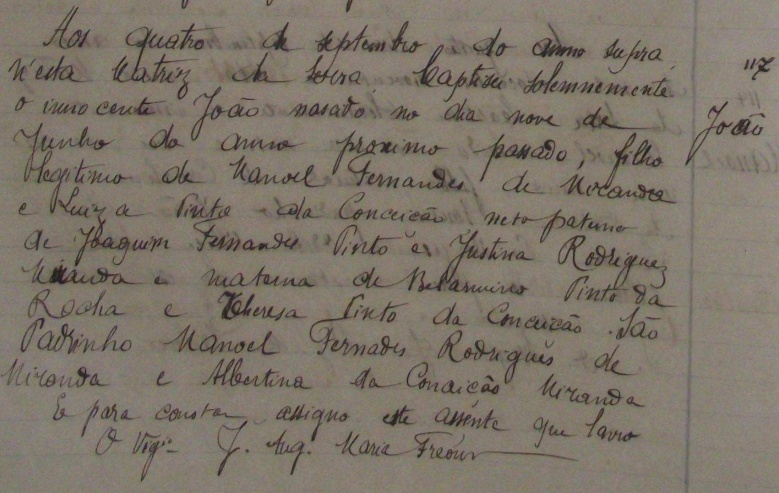 Aos quatro de septembro do anno supra
117
n'esta Matriz da Serra baptisei solemnemente
o innocente João nascido no dia nove de
João
Junho do anno proximo passado, filho
legitimo de Manoel Fernandes de Miranda
e Luiza Pinto da Conceição neto paterno
de Joaquim Fernandes Pinto e Justina Rodriguez
Miranda e materna de Belarmino Pinto da
Rocha e Theresa Pinto da Conceição. São
Padrinho Manoel Fernades Rodrigues de
Miranda e Albertina da Conceição Miranda
E para constar assigno este assente que lavro
O Vigº J. Aug. Maria Freour